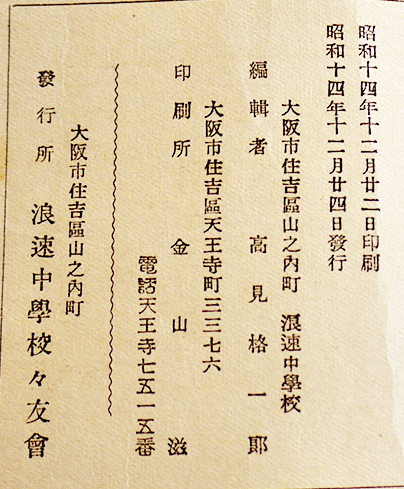 昭和十四年十二月廿二日印刷
昭和十四年十二月廿四日發行
大阪市住吉區山之內町 浪速中學校
編輯者 高見格一郞
大阪市住吉區天王寺町三三七六
印刷所 金山滋
電話天王寺七五一五番
大阪市住吉區山之內町
發行所 浪速中學校々友會